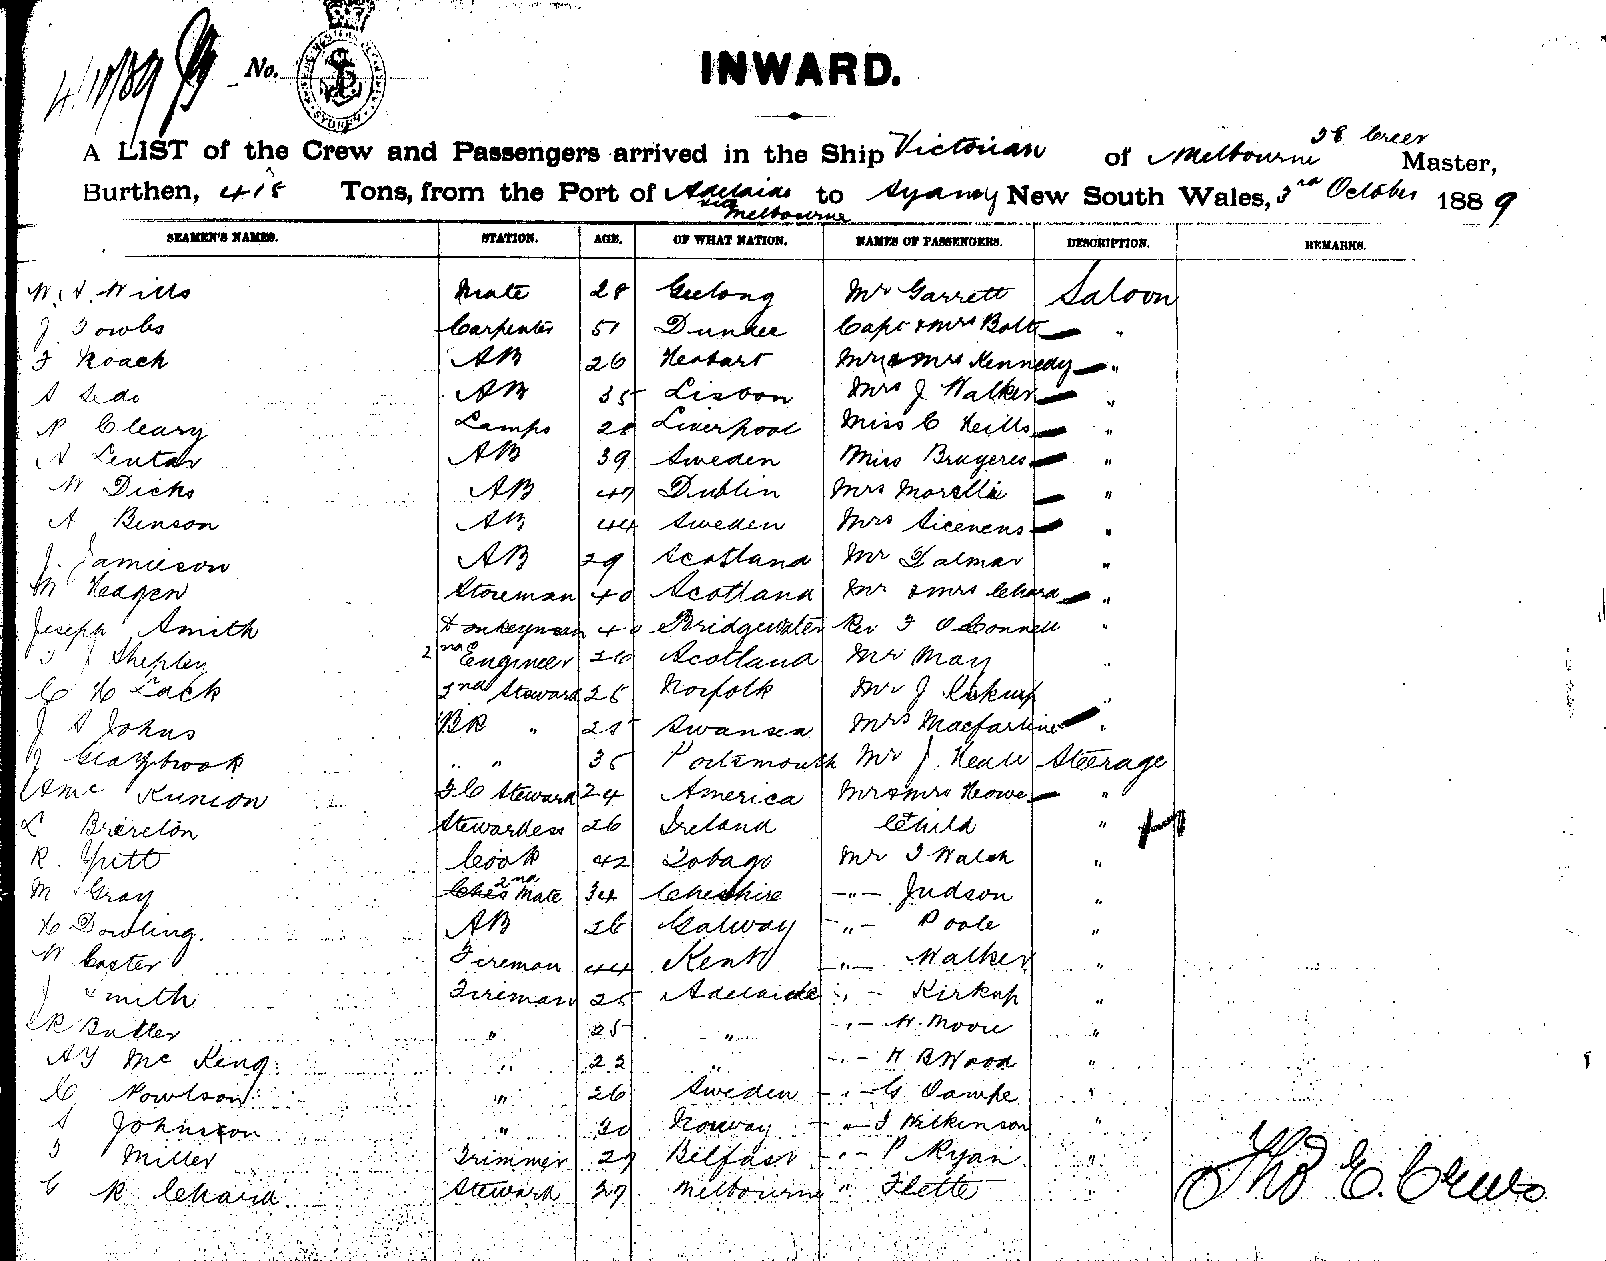 4/10/89 No.
SYDNEY
INWARD.
A LIST of the Crew and Passengers arrived in the Ship Victorian of Melbourne Master,
Burthen, 418 Tons, from the Port of Adelaide via Melbourne to Sydney New South Wales, 3rd October 1889
SEAMEN'S NAMES. STATION. AGE. OF WHAT NATION. NAMES OF PASSENGERS. DESCRIPTION. REMARKS.
W. A. Wills Mate 28 Geelong Mr Garrett Saloon
J Fowles Carpenter 51 Dundee Capt & Mrs Bolt "
F Roach AB 26 Hobart Mr & Mrs Kennedy "
AB 35 Lisbon Mrs J Walker "
P Cleary Lamps 28 Liverpool Miss C "
A AB 39 Sweden Miss Bruyeres "
W Dicks AB 47 Dublin Mrs "
A Benson AB 44 Sweden Mrs "
J. Jamieson AB 29 Scotland Mr Dalmar "
M Storeman 40 Scotland Mr & Mrs Chard "
Joseph Smith Donkeyman 40 Bridgwater Rev O'Connell "
J Shepley 2nd Engineer Scotland Mr May "
C H Lack 2nd Steward 25 Norfolk Mr J Kirkup "
J S Johns BR " 25 Swansea Mrs Macfarline "
Glazbrook " " 35 Portsmouth Mr J. Neale Steerage
F C Steward 24 America Mr & Mrs Howe "
L Brereton Stewardess 26 Ireland Child "
R. Cook 42 Tobago Mr Walsh "
M Gray 2nd Mate 34 Cheshire -"- Judson "
H Dowling. AB 26 Galway -"- Poole "
W Fireman 44 Kent -"- Walker "
J Smith Fireman 25 Adelaide -"- Kirkup "
R Butler " 25 " -"- H. Moore "
Mc King " 22 " -"- H B Wood "
C " 26 Sweden -"- G "
Johnston " 30 Norway -"- Wilkinson "
Miller Trimmer 29 Belfast -"- P Ryan "
C R Chard Steward 27 Melbourne " Flette "